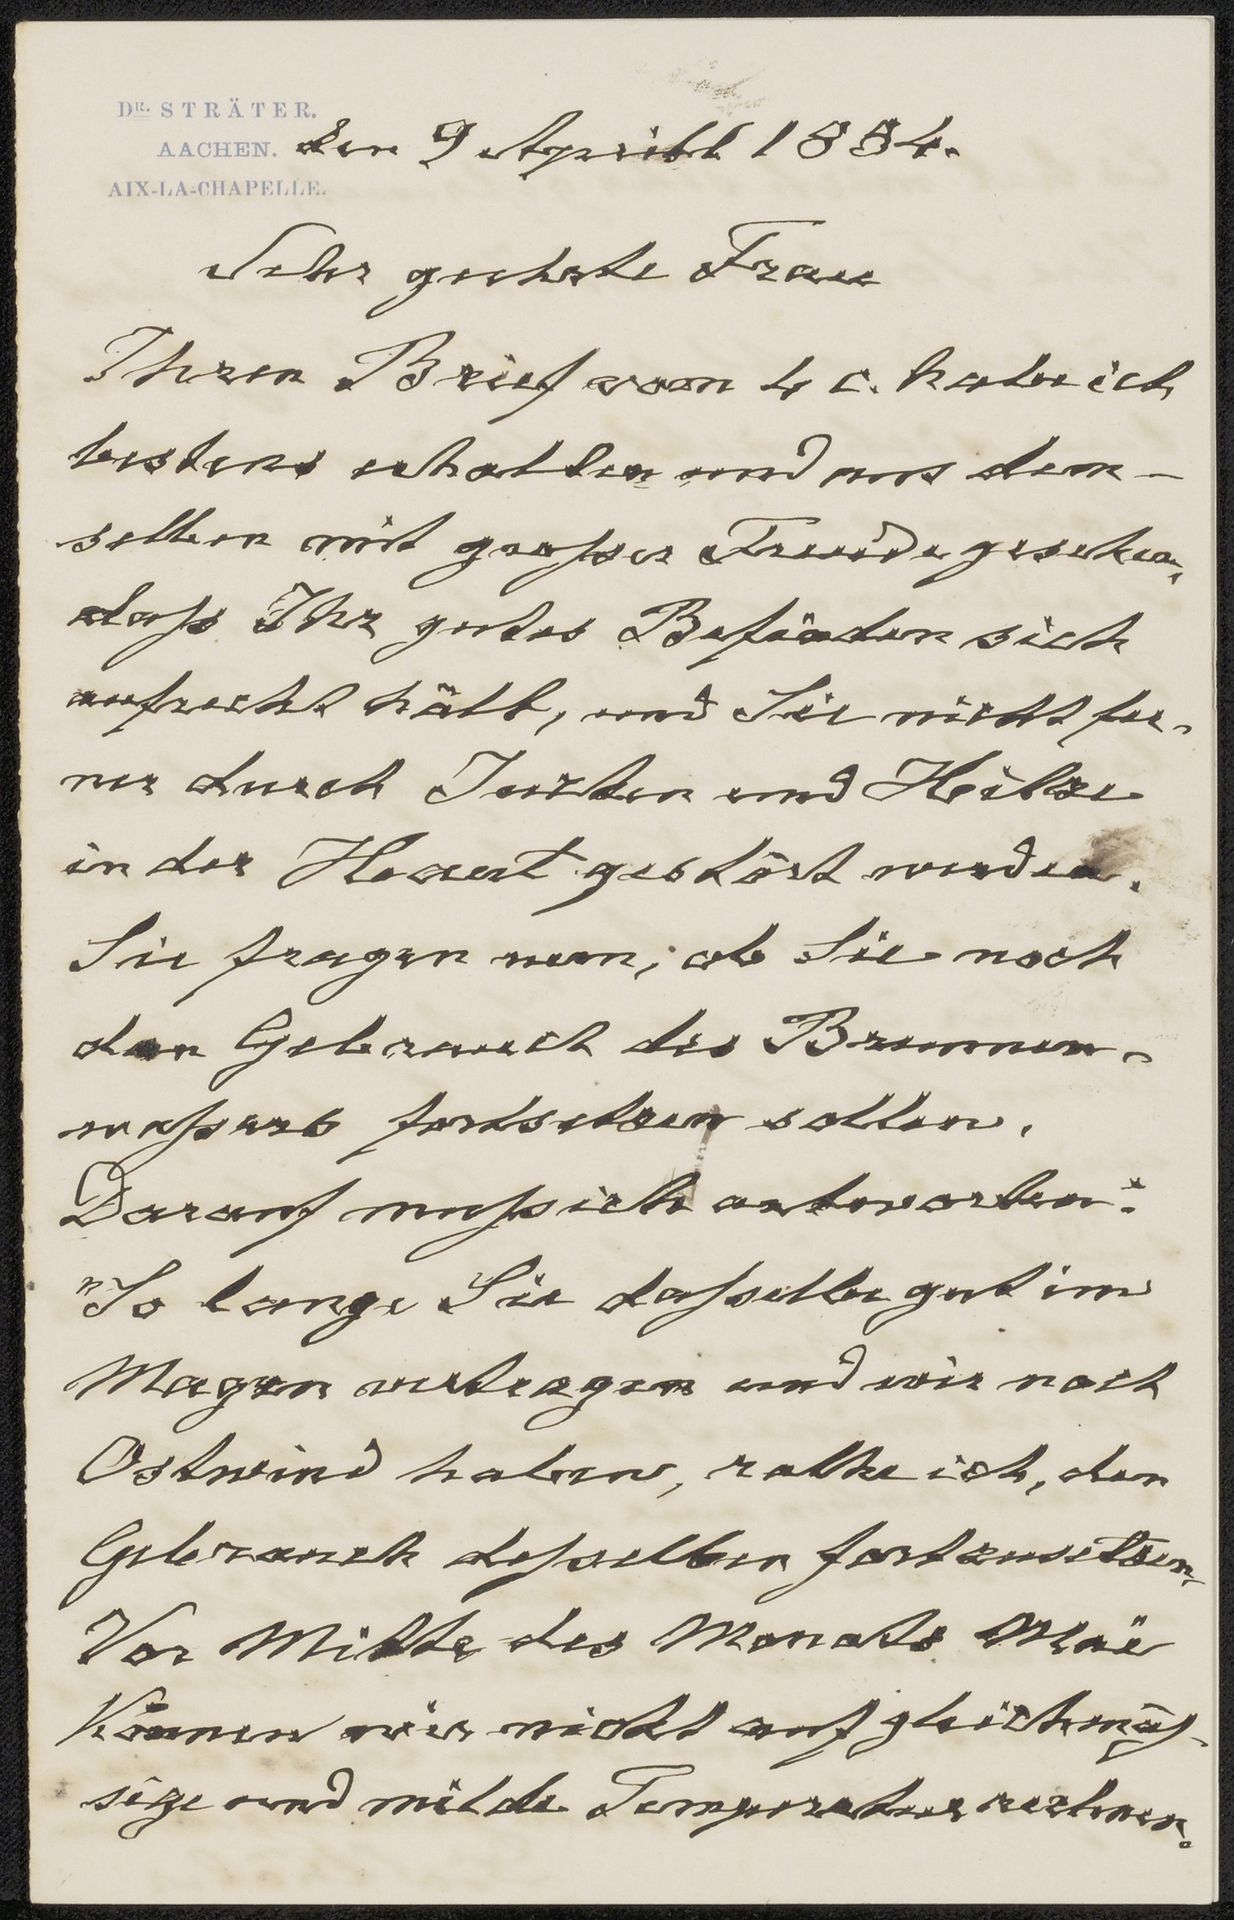 DR. STRÄTER.
AACHEN.
AIX-LA-CHAPELLE.
den 9 Aprill 1884.
Sehr geehrte Frau
Ihren Brief vom 4 c. habe ich
bestens erhalten und aus dem-
selben mit großer Freude gesehen,
daß Ihr gutes Befinden sich
aufrecht hält, und Sie nicht fer-
ner durch Jucken und Hitze
in der Haut gestört werden.
Sie fragen nun, ob Sie noch
den Gebrauch des Brunnen-
waßers fortsetzen sollen.
Darauf muß ich antworten:
"So lange Sie daßselbe gut im
Magen vertragen und wir noch
Ostwind haben, rathe ich, den
Gebrauch deßselben fortzusetzen.
Vor Mitte des Monats Mai
können wir nicht auf gleichmäß-
sige und milde Temperatur rechnen.